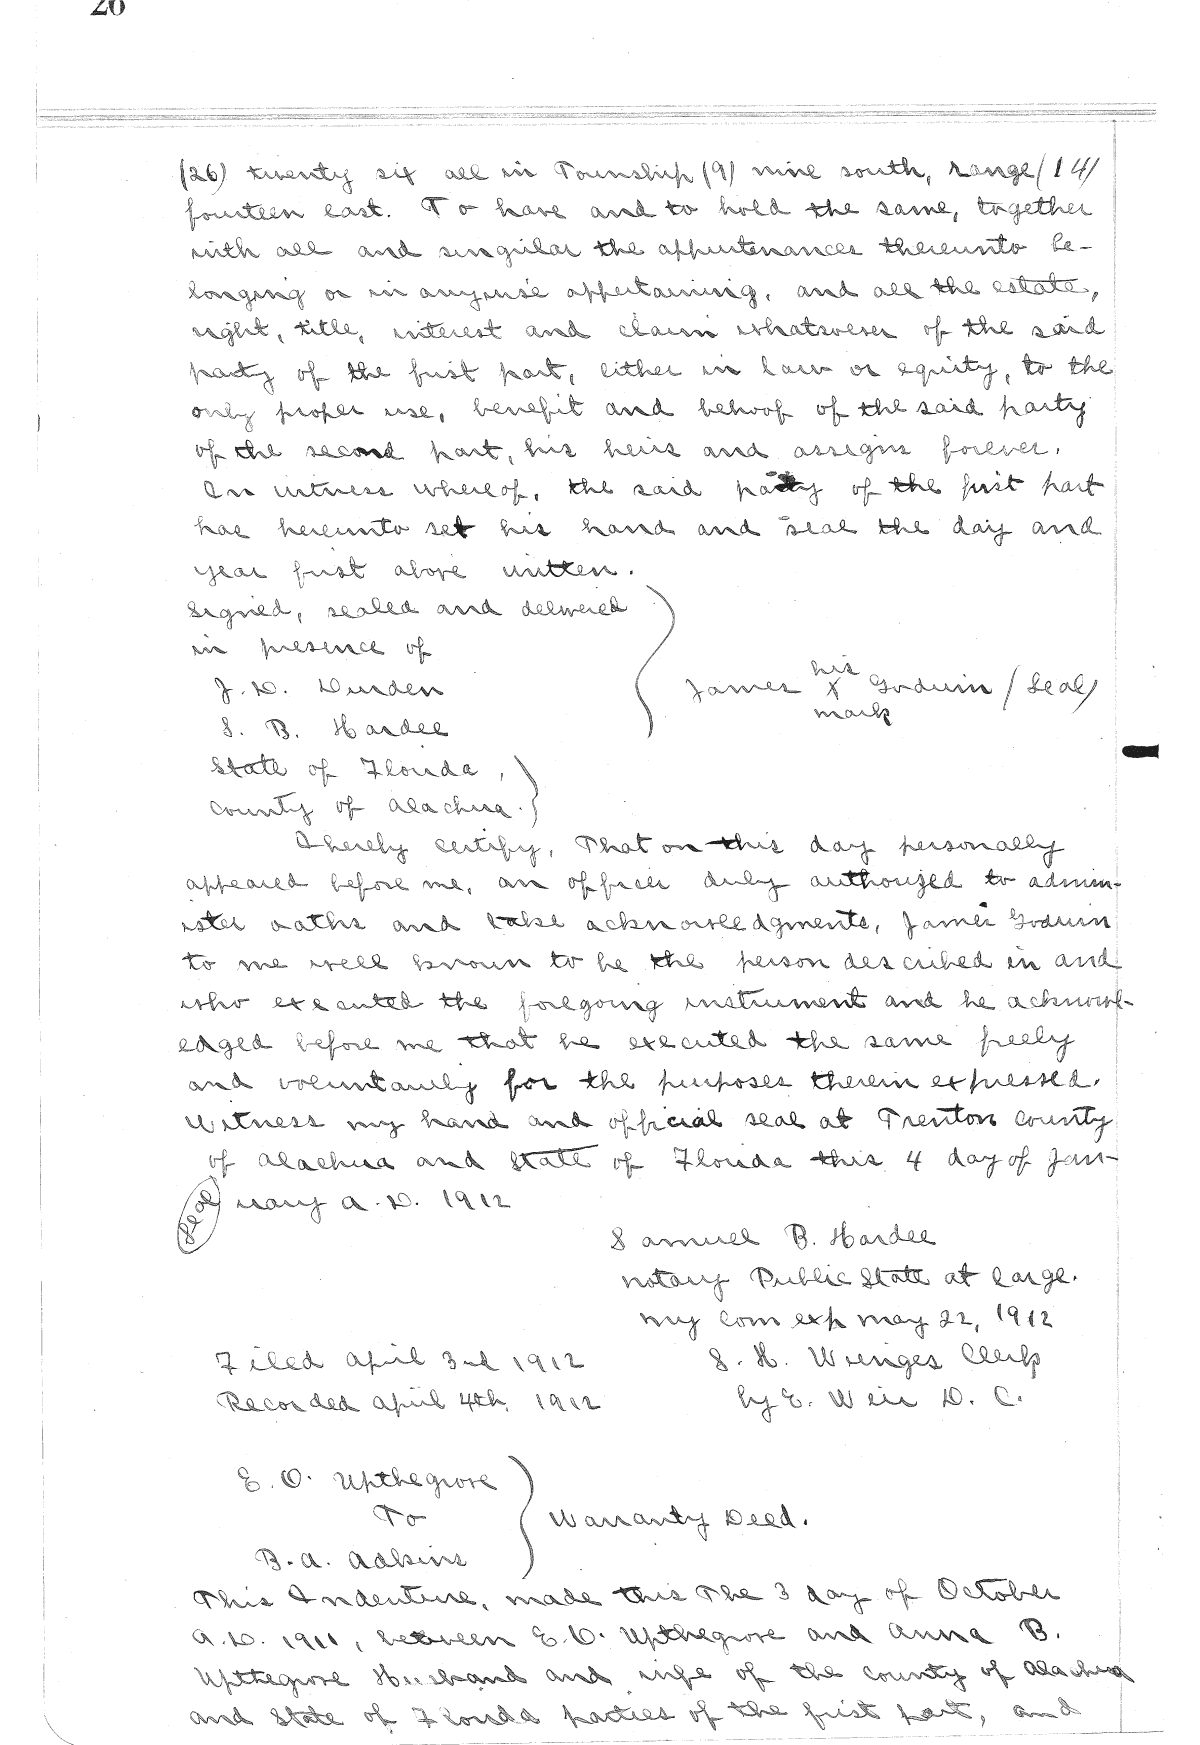 26
(26) twenty six all in Township (9) nine south, range (14)
fourteen east. To have and to hold the same, together
with all and singular the appurtenances thereunto be-
longing or in anywise appertaining, and all the estate,
right, title, interest and claim whatsoever of the said
party of the first part, either in law or equity, to the
only proper use, benefit and behoof of the said party
of the second part, his heirs and assigns forever.
In witness whereof, the said party of the first part
has hereunto set his hand and seal the day and
year first above written.
Signed, sealed and delivered
in presence of
J. D. Durden
S. B. Hardee
his
James X Godwin (Seal)
mark
State of Florida,
County of Alachua.
I hereby certify, That on this day personally
appeared before me, an officer duly authorized to admin-
ister oaths and take acknowledgments, James Godwin
to me well known to be the person described in and
who executed the foregoing instrument and he acknowl-
edged before me that he executed the same freely
and voluntarily for the purposes therein expressed.
Witness my hand and official seal at Trenton County
of Alachua and State of Florida this 4 day of Jan-
(Seal) uary A.D. 1912
Samuel B. Hardee
Notary Public State at large.
My com exp May 22, 1912
Filed April 3rd 1912 S. H. Wienges Clerk
Recorded April 4th, 1912 by E. Weir D. C.
E. O. Upthegrove
To
B. A. Adkins
Warranty Deed.
This Indenture, made this The 3 day of October
A.D. 1911, between E. O. Upthegrove and Anna B.
Upthegrove Husband and wife of the county of Alachua
and State of Florida parties of the first part, and